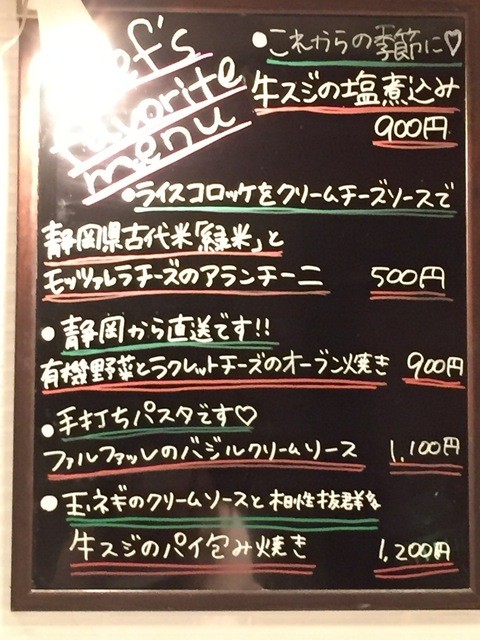 Chef's
favorite
menu
●これからの季節に♡
牛スジの塩煮込み
900円
●ライスコロッケをクリームチーズソースで
静岡県古代米「緑米」と
モッツァレラチーズのアランチーニ 500円
●静岡から直送です!!
有機野菜とラクレットチーズのオーブン焼き 900円
●手打ちパスタです♡
ファルファッレのバジルクリームソース 1,100円
●玉ネギのクリームソースと相性抜群な
牛スジのパイ包み焼き 1,200円